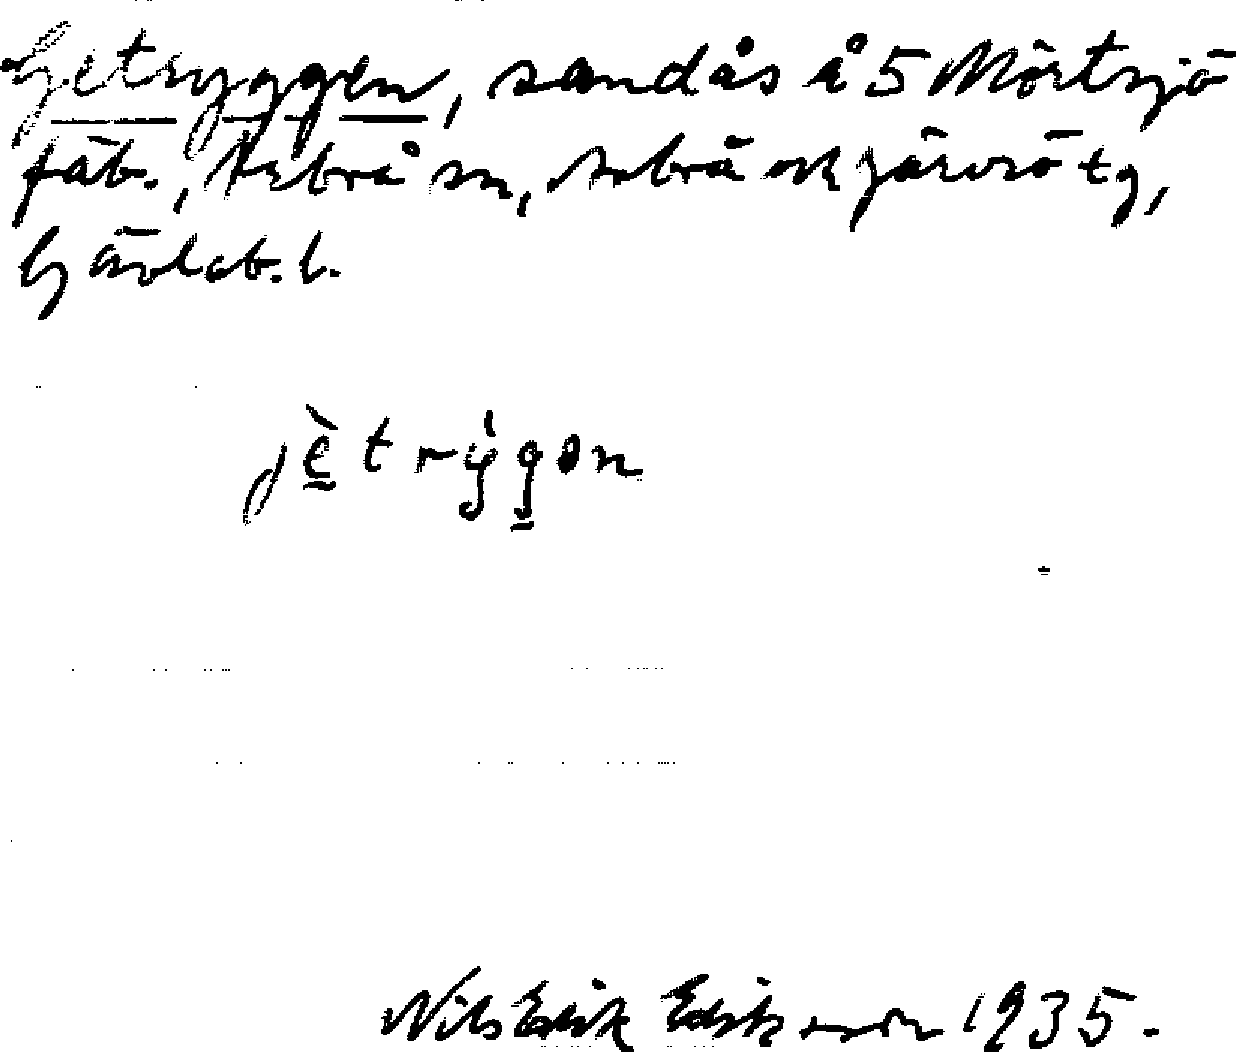 Getryggen, sandås å 5 Mörtsjö
fäb., Arbrå sn, Arbrå och Järvsö tg,
Gävleb. l.
jètrýgən
Nils Erik Eriksson 1935.